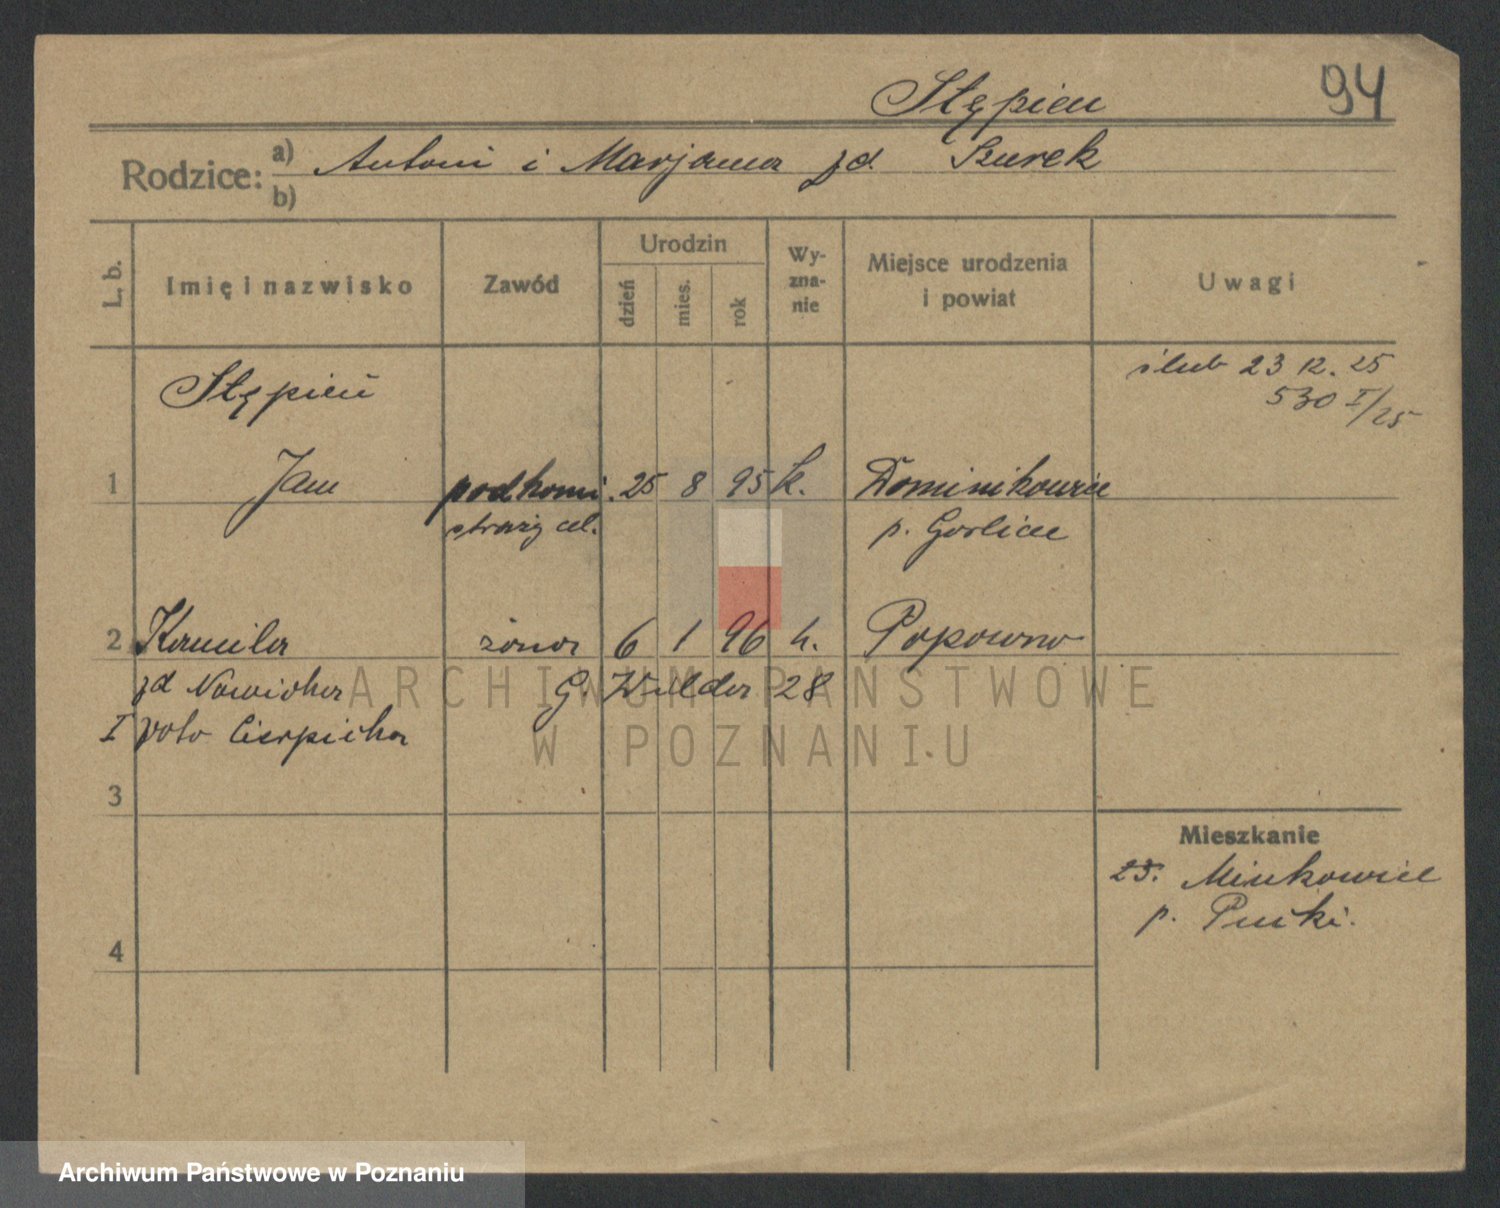 Stępień
94
Rodzice: a) Antoni i Marjanna zd. Szurek
b)
L. b.
Imię i nazwisko
Zawód
Urodzin
dzień
mies.
rok
Wy-
zna-
nie
Miejsce urodzenia
i powiat
Uwagi
ślub 23 12. 25
530 I/25
Stępień
1 Jan podkomi. 25 8 95 k. Dominikowice
straży cel. p. Gorlice
2 Kamila żona 6 1 96 k. Popowno
zd Nowicka G. Wilda 28
I voto Cierpicka
3
Mieszkanie
23. Minkowice
p.
4
ARCHIWUM PAŃSTWOWE
W POZNANIU
Archiwum Państwowe w Poznaniu